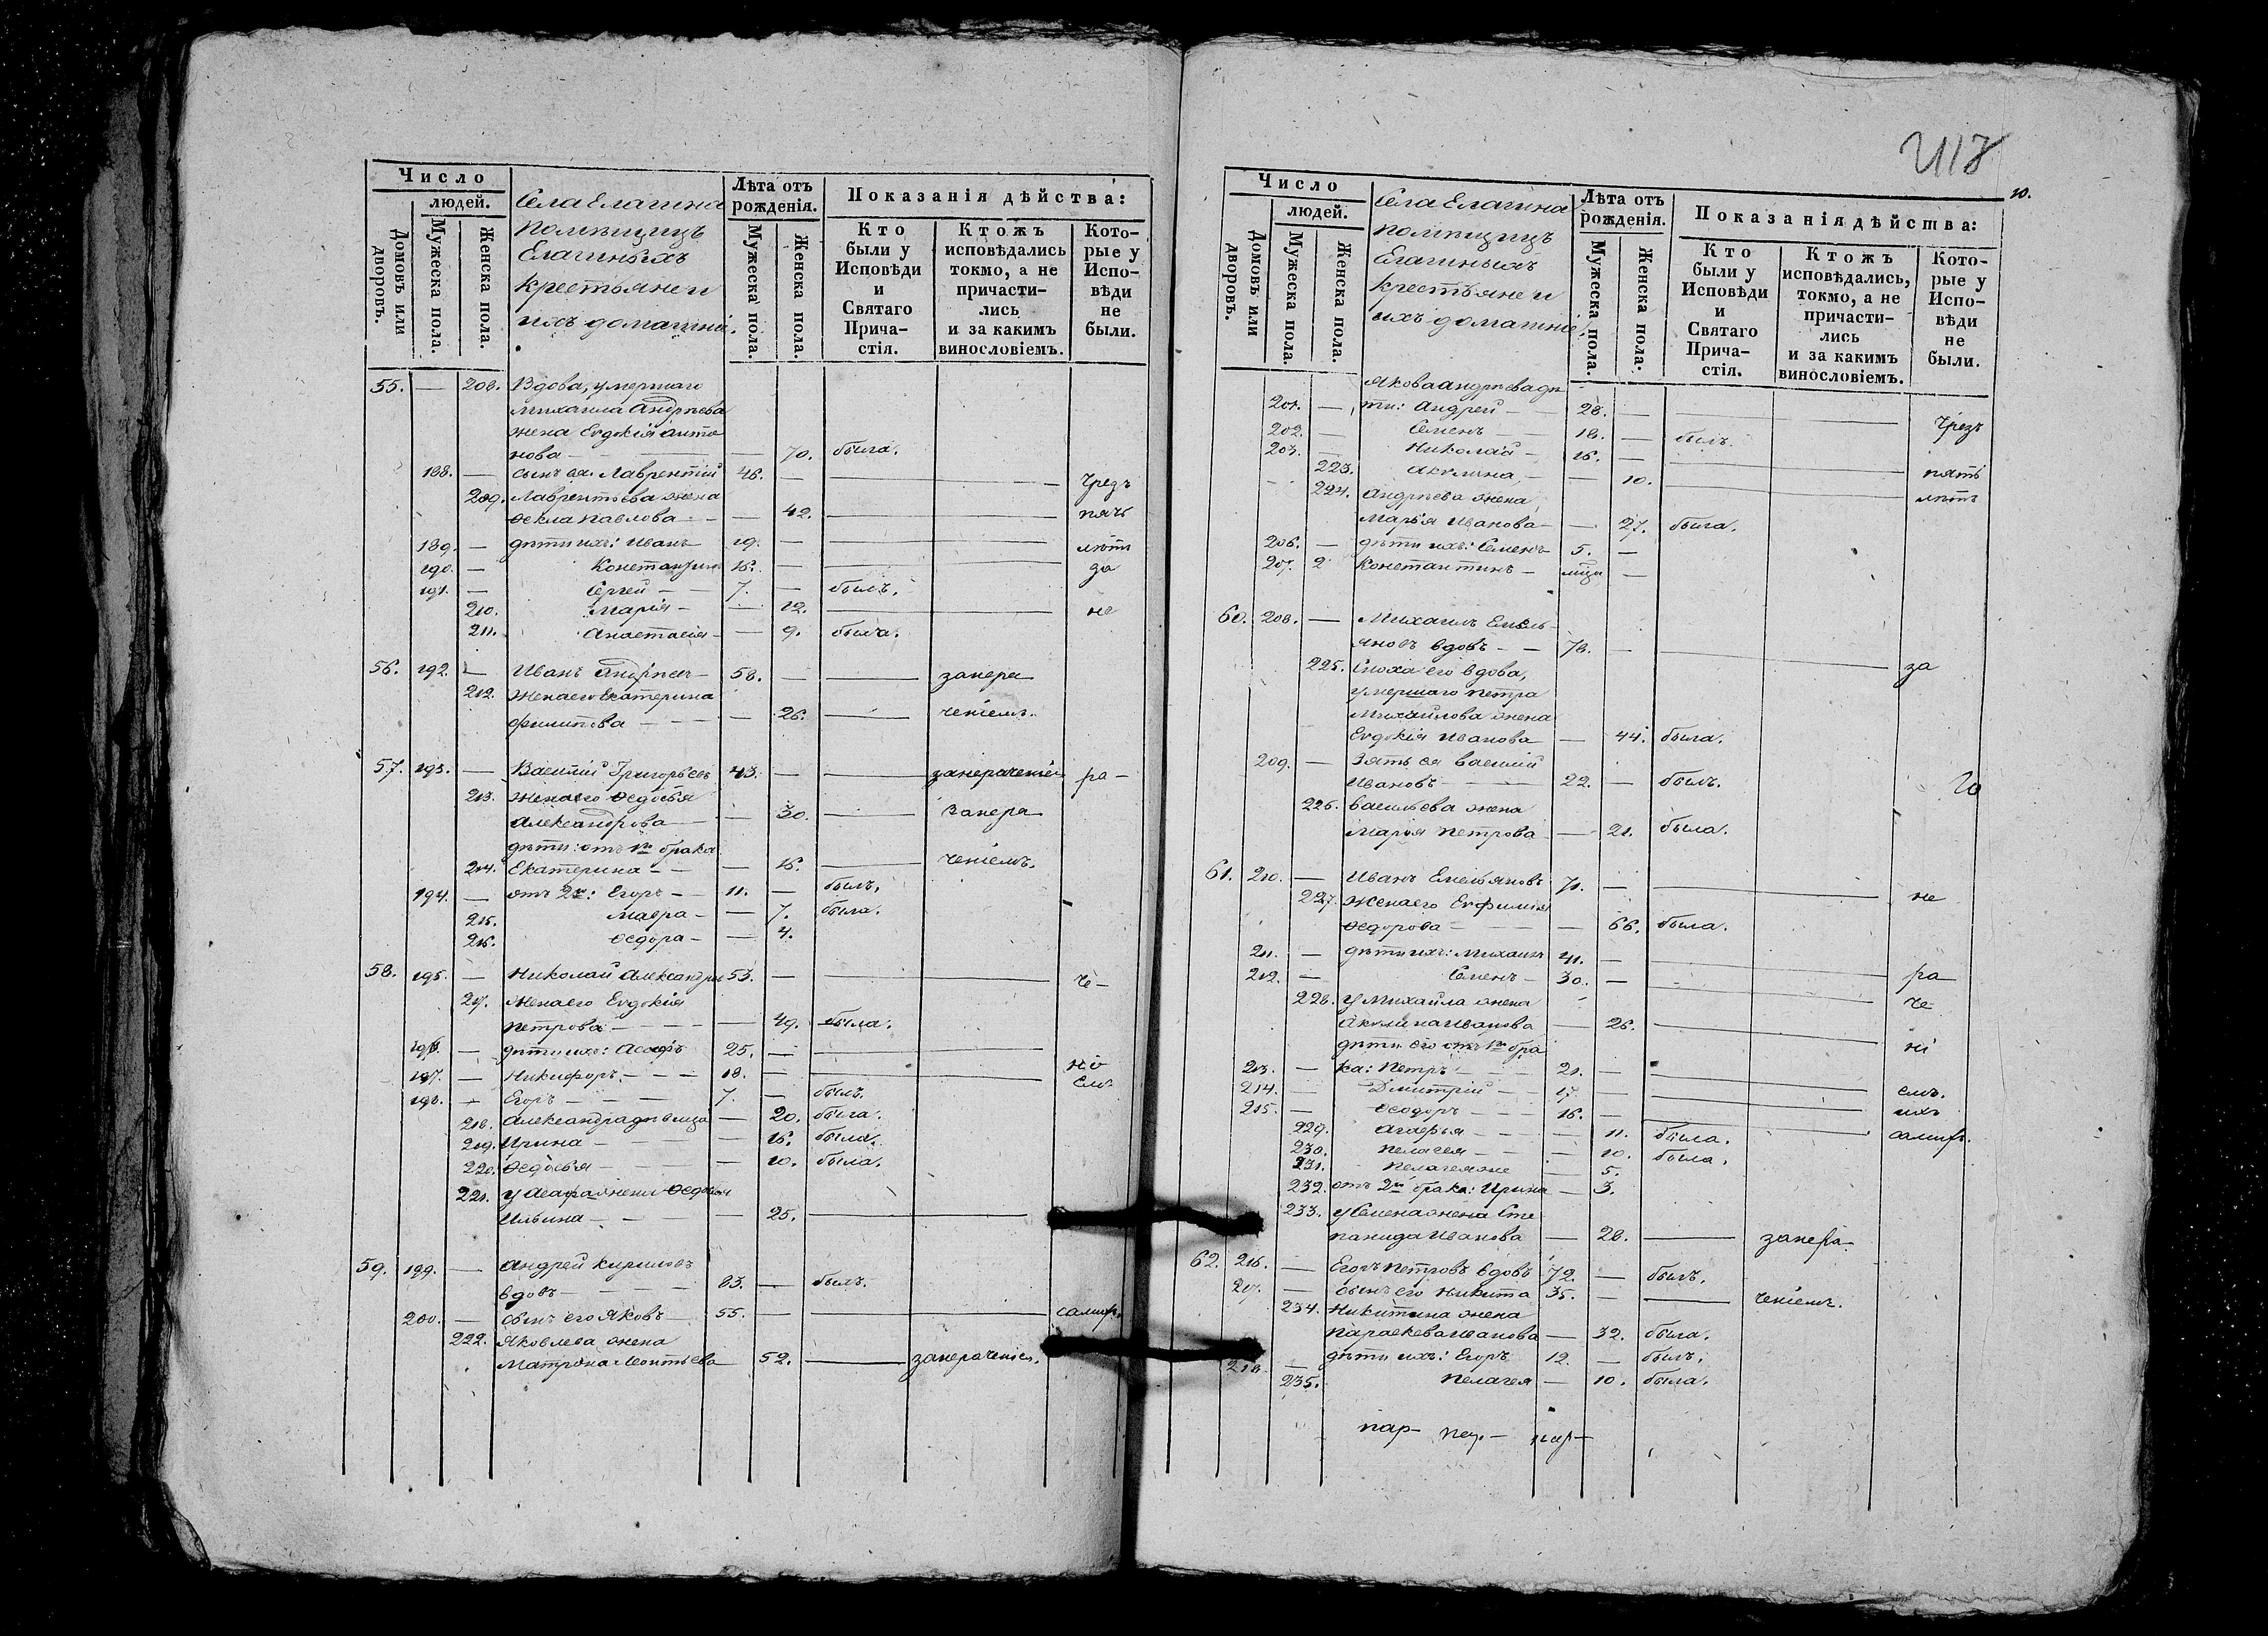 Число
людей.
Домовъ или дворовъ.
Мужеска пола.
Женска пола.
Села Елагина
помѣщицъ
Елагиныхъ
крестьяне и
ихъ домашніе.
Лѣта отъ рожденія.
Мужеска пола.
Женска пола.
Показанія дѣйства:
Кто были у Исповѣди и Святаго Прича-стія.
Ктожъ исповѣдались токмо, а не причасти-лись и за какимъ винословіемъ.
Кото-рые у Испо-вѣди не были.
55. — 208. Вдова, умершаго
Михаила Андрѣева
жена Евдокія Анто
нова — — 70. была.
188. — сынъ ея Лаврентій 46. — — Чрезъ
209. Лаврентьева жена
Ѳекла Павлова — — 42. — пять
189. — дѣти ихъ: Иванъ 19. — — лѣтъ
190. — Константинъ 16. — — за
191. — Сергей — 7. — былъ.
210. Марія — — 12. — не
211. Анастасія — — 9. была.
56. 192. — Иванъ Андрѣевъ — 58. — — занера
212. Жена его Екатерина
Филипова — — 26. — ченіемъ.
57. 193. — Василій Григорьевъ 43. — — занераченіем ра —
213. Жена его Ѳедосья
Александрова — — 30. — Занера
дѣти: отъ 1го брака
214. Екатерина — — 16. — ченіемъ.
194. — отъ 2го: Егоръ — 11. — былъ.
215. Мавра — — 7. была.
216. Ѳедора — — 4.
58. 195. — Николай Александр 53. — — че —
217. Жена его Евдокія
Петрова — — 49. была.
196. — дѣти ихъ: 25. — —
197. — Никифоръ — 18. — — ніемъ
198. — Егоръ — 7. — былъ.
218. Александра дѣвица — 20. была.
219. Ирина — — 16. была.
220. Ѳедосья — — 10. была.
221. жена Ѳедосья
Ильина — — 25. —
59. 199. — Андрей Кириловъ
вдовъ — 83. — былъ.
200. — сынъ его Яковъ — 55. — —
222. Яковлева жена
Матрона Леонтьева 52. — занераченіем.
10.
Число
людей.
Домовъ или дворовъ.
Мужеска пола.
Женска пола.
Села Елагина
помѣщицъ
Елагиныхъ
крестьяне и
ихъ домашніе.
Лѣта отъ рожденія.
Мужеска пола.
Женска пола:
Показанія дѣйства:
Кто были у Исповѣди и Святаго Прича-стія.
Ктожъ исповѣдались, токмо, а не причасти-лись и за какимъ винословіемъ.
Кото-рые у Испо-вѣди не были.
Якова Андрѣева дѣ
201. — ти: Андрей — 28. — — Чрезъ
202. — Семенъ 18. — былъ.
203. — Николай — 16. — — пять
223. Акулина — — 10. — лѣтъ
224. Андрѣева жена
Марья Иванова — — 27. была.
206. — дѣти ихъ: Семенъ 5. —
207. 2 Константинъ — —
60. 208. — Михаилъ Емель
яновъ вдовъ — — 78. — — за
225. Сноха его вдова,
умершаго Петра
Михайлова жена
Евдокія Иванова — 44. была.
209. — Зять ея Василій
Ивановъ — 22. — былъ.
226. Васильева жена
Марья Петрова — 21. была.
61. 210. — Иванъ Емельяновъ 71. — — не
227. Жена его Евфимія
Ѳедорова — — 66. была.
211. — дѣти ихъ: Михаилъ 41. — — ра —
212. — Семенъ — 30. — — че
228. у Михайла жена
Акулина Иванова — 26. — ні
дѣти его отъ 1го бра
213. — ка: Петръ — 21. — —
214. — Дмитрій — 17. — — емъ.
215. — Ѳеодоръ — 16. — — ихъ
229. Агафья — — 11. была.
230. Пелагея — — 10. была.
231. Пелагея же — 5.
232. отъ 2го брака: Ирина — 3.
233. у Семена жена Сте
панида Иванова — 28. — занера —
62. 216. — Егоръ Петровъ вдовъ 72. — былъ.
217. — сынъ его Никита 35. — — ченіемъ.
234. Никитина жена
Параскева Иванова — 32. была.
218. — дѣти ихъ: Егоръ 12. — былъ.
235. Пелагея — 10. была.